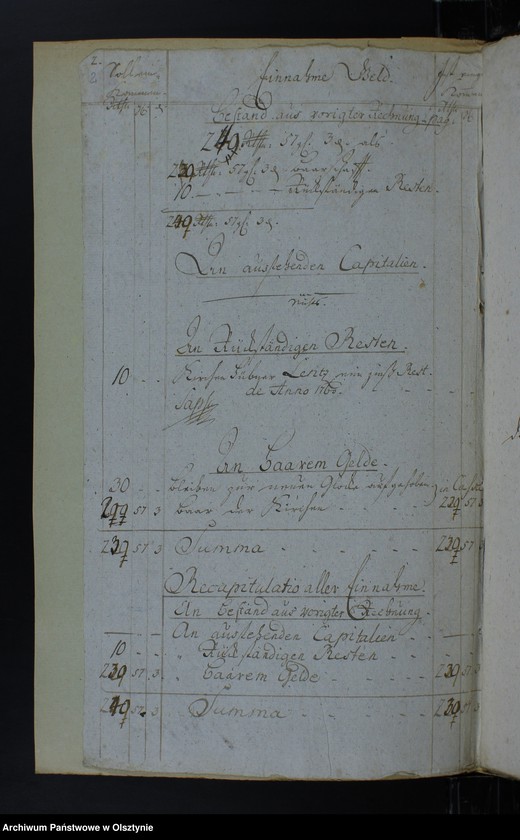 2.
Soll ein-
kommen
Einnahme Geld.
Ist eing
Rthlr. gl. d.
Bestand aus voriger Rechnung pag.
249 Rthlr. 57 gl. 3 d. als
239 Rthlr. 57 gl. 3 d. baarschafft.
10. - - - - Rückständigen Resten.
249 Rthlr. 57 gl. 3 d.
An ausstehenden Capitalien.
Nichts.
An Rückständigen Resten.
10. - - Kirchen Hübner Lentz Rest
de Anno 1760.
An Baarem Gelde.
30 - - bleiben zur neuen Glocke aufgehoben
57 3 baar der Kirchen - - 239 57 3
239 57 3 Summa - - - 239 57 3
Recapitulatio aller Einnahme.
An bestand aus voriger Rechnung.
An ausstehenden Capitalien - -
10 - - " Rückständigen Resten - -
239 57 3 " Baarem Gelde - - - 239 57 3
249 57 3 Summa - - - 239 57 3
Archiwum Państwowe w Olsztynie